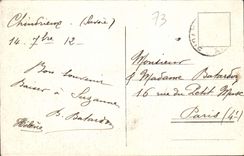 Chindrieux (Savoie)
73
14 7bre 12
Bon souvenir
Baiser à Suzanne
B. Batardon
Hélène
Monsieur
& Madame Batardon
16 rue du Petit Musc
Paris (4e)